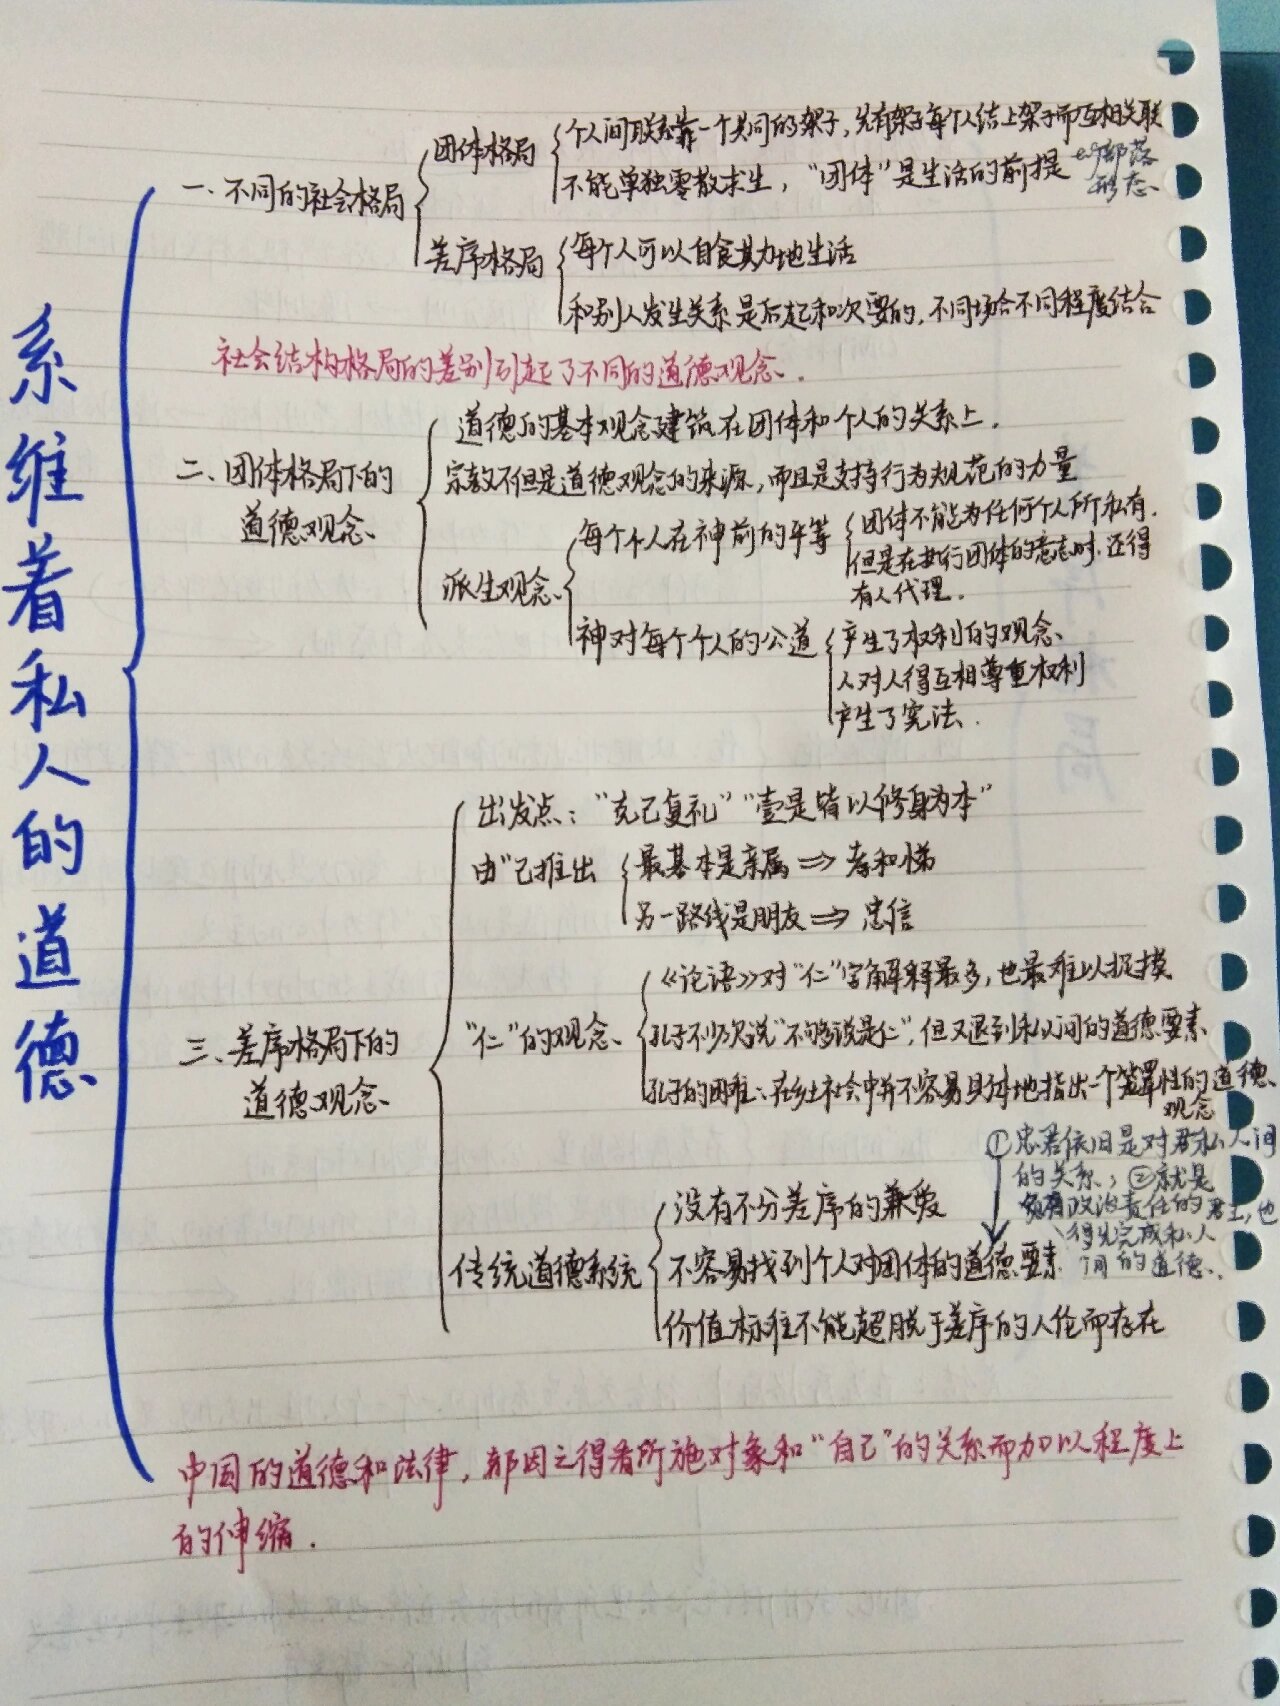 系维着私人的道德
一、不同的社会格局
团体格局
个人间联系靠一个共同的架子，先有架子每个人结上架子而互相关联
不能单独零散求生，“团体”是生活的前提
eg部落
形态
差序格局
每个人可以自食其力地生活
和别人发生关系是后起和次要的，不同场合不同程度结合
社会结构格局的差别引起了不同的道德观念．
二、团体格局下的
道德观念
道德的基本观念建筑在团体和个人的关系上．
宗教不但是道德观念的来源，而且是支持行为规范的力量
派生观念
每个个人在神前的平等
团体不能为任何个人所私有．
但是在执行团体的意志时，还得
有人代理．
神对每个个人的公道
产生了权利的观念
人对人得互相尊重权利
产生了宪法．
三、差序格局下的
道德观念
出发点：“克己复礼”“壹是皆以修身为本”
由“己推出
最基本是亲属⇒孝和悌
另一路线是朋友⇒忠信
“仁”的观念
《论语》对“仁”字解释最多，也最难以捉摸
孔子不少次说“不够说是仁”，但又退到私人间的道德要素
孔子的困难：在乡土社会中并不容易具体地指出一个笼罩性的道德
观念
传统道德系统
没有不分差序的兼爱
不容易找到个人对团体的道德要素
价值标准不能超脱于差序的人伦而存在
①忠君依旧是对君私人间
的关系；②就是
负有政治责任的君王，也
得先完成私人
间的道德．
中国的道德和法律，都因之得看所施对象和“自己”的关系而加以程度上
的伸缩．